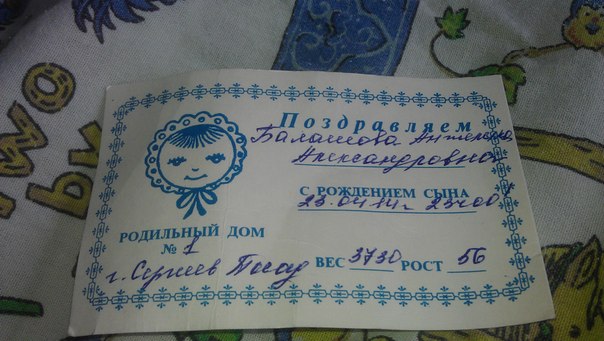 Поздравляем
Балашова
Александровна
С РОЖДЕНИЕМ СЫНА
23.04.14г
РОДИЛЬНЫЙ ДОМ
№ 1
г. Сергиев Посад
ВЕС 3730 РОСТ 56